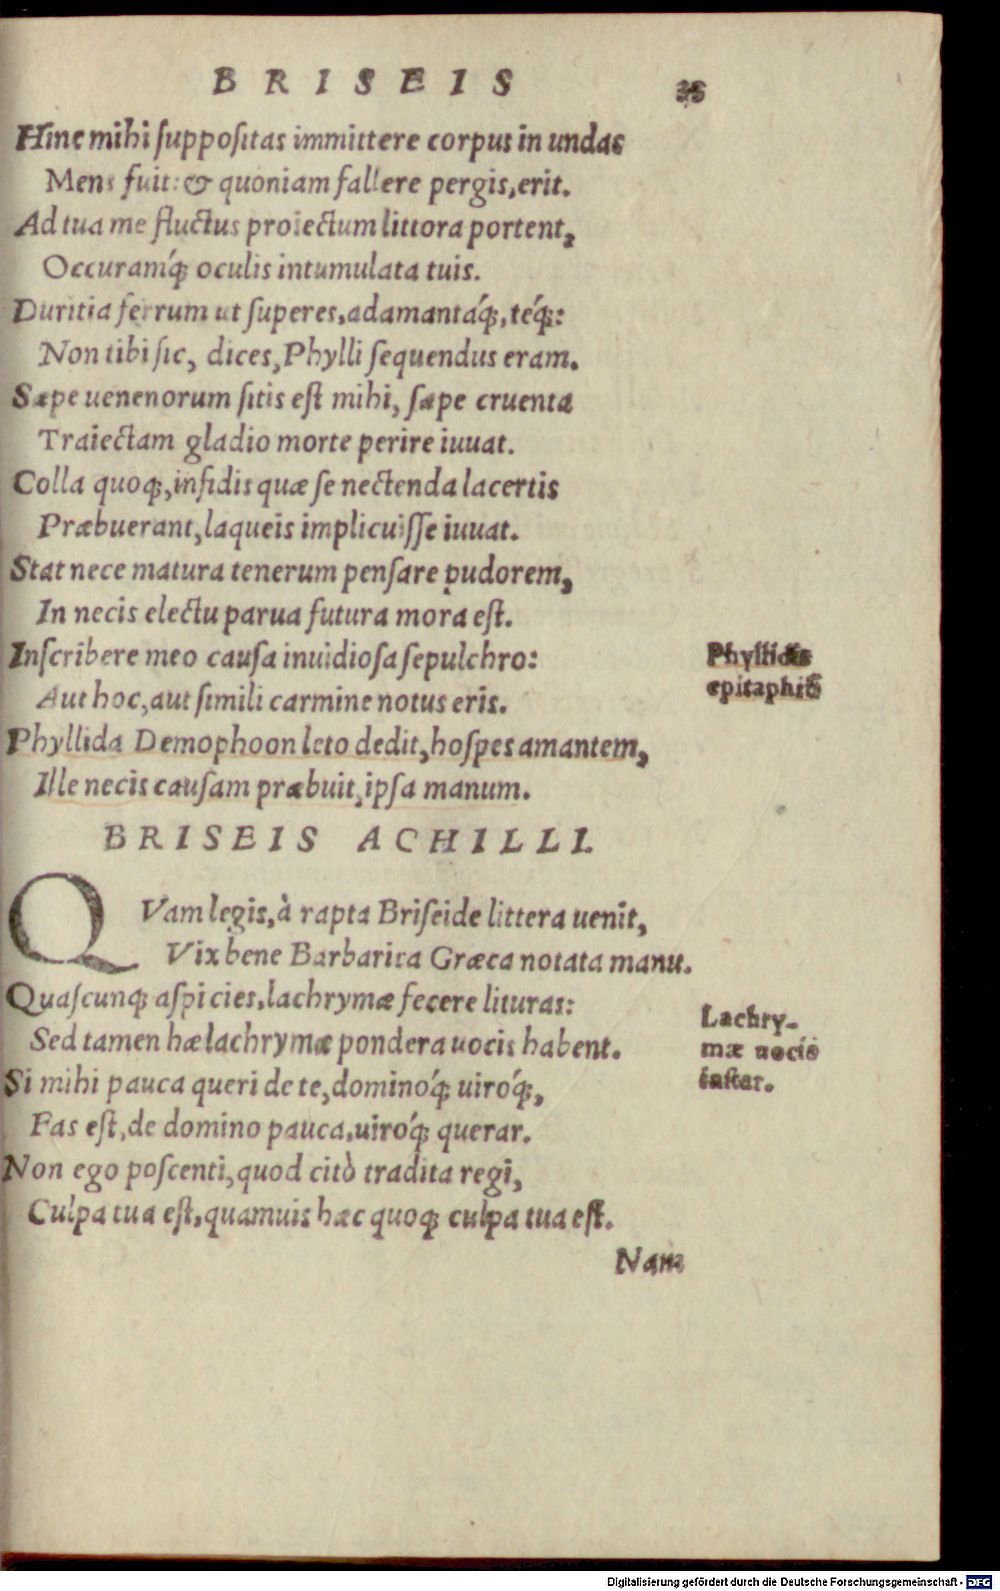 BRISEIS 35
Hinc mihi ſuppoſitas immittere corpus in undas
Mens fuit: & quoniam fallere pergis, erit.
Ad tua me fluctus proiectum littora portent,
Occuramq́; oculis intumulata tuis.
Duritia ferrum ut ſuperes, adamantáq́;, téq́;:
Non tibi ſic, dices, Phylli ſequendus eram.
Sæpe uenenorum ſitis eſt mihi, ſæpe cruenta
Traiectam gladio morte perire iuuat.
Colla quoq;, infidis quæ ſe nectenda lacertis
Præbuerant, laqueis implicuiſſe iuuat.
Stat nece matura tenerum penſare pudorem,
In necis electu parua futura mora eſt.
Inſcribere meo cauſa inuidioſa ſepulchro:
Aut hoc, aut ſimili carmine notus eris.
Phyllidis
epitaphiũ
Phyllida Demophoon leto dedit, hoſpes amantem,
Ille necis cauſam præbuit, ipſa manum.
BRISEIS ACHILLI.
QVam legis, à rapta Briſeide littera uenit,
Vix bene Barbarica Græca notata manu.
Quaſcunq; aſpicies, lachrymæ fecere lituras:
Sed tamen hæ lachrymæ pondera uocis habent.
Lachry-
mæ uocis
inſtar.
Si mihi pauca queri de te, dominoq́; uiroq́;,
Fas eſt, de domino pauca, uiroq́; querar.
Non ego poſcenti, quod citò tradita regi,
Culpa tua eſt, quamuis hæc quoq; culpa tua eſt.
Nam
Digitalisierung gefördert durch die Deutsche Forschungsgemeinschaft - DFG